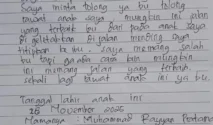 Saya minta tolong ya bu tolong
rawat anak saya mungkin ini jalan
yang terbaik bu dari pada anak saya
di geletakkan di jalan mending saya
titipkan ke ibu. saya memang salah
bu tapi gaada cara lain mungkin
ini memang jalan yang terbaik.
sekali lagi rawat anak ini ya bu.
Tanggal lahir anak ini
28 November 2025
Namanya Muhammad Rayyan